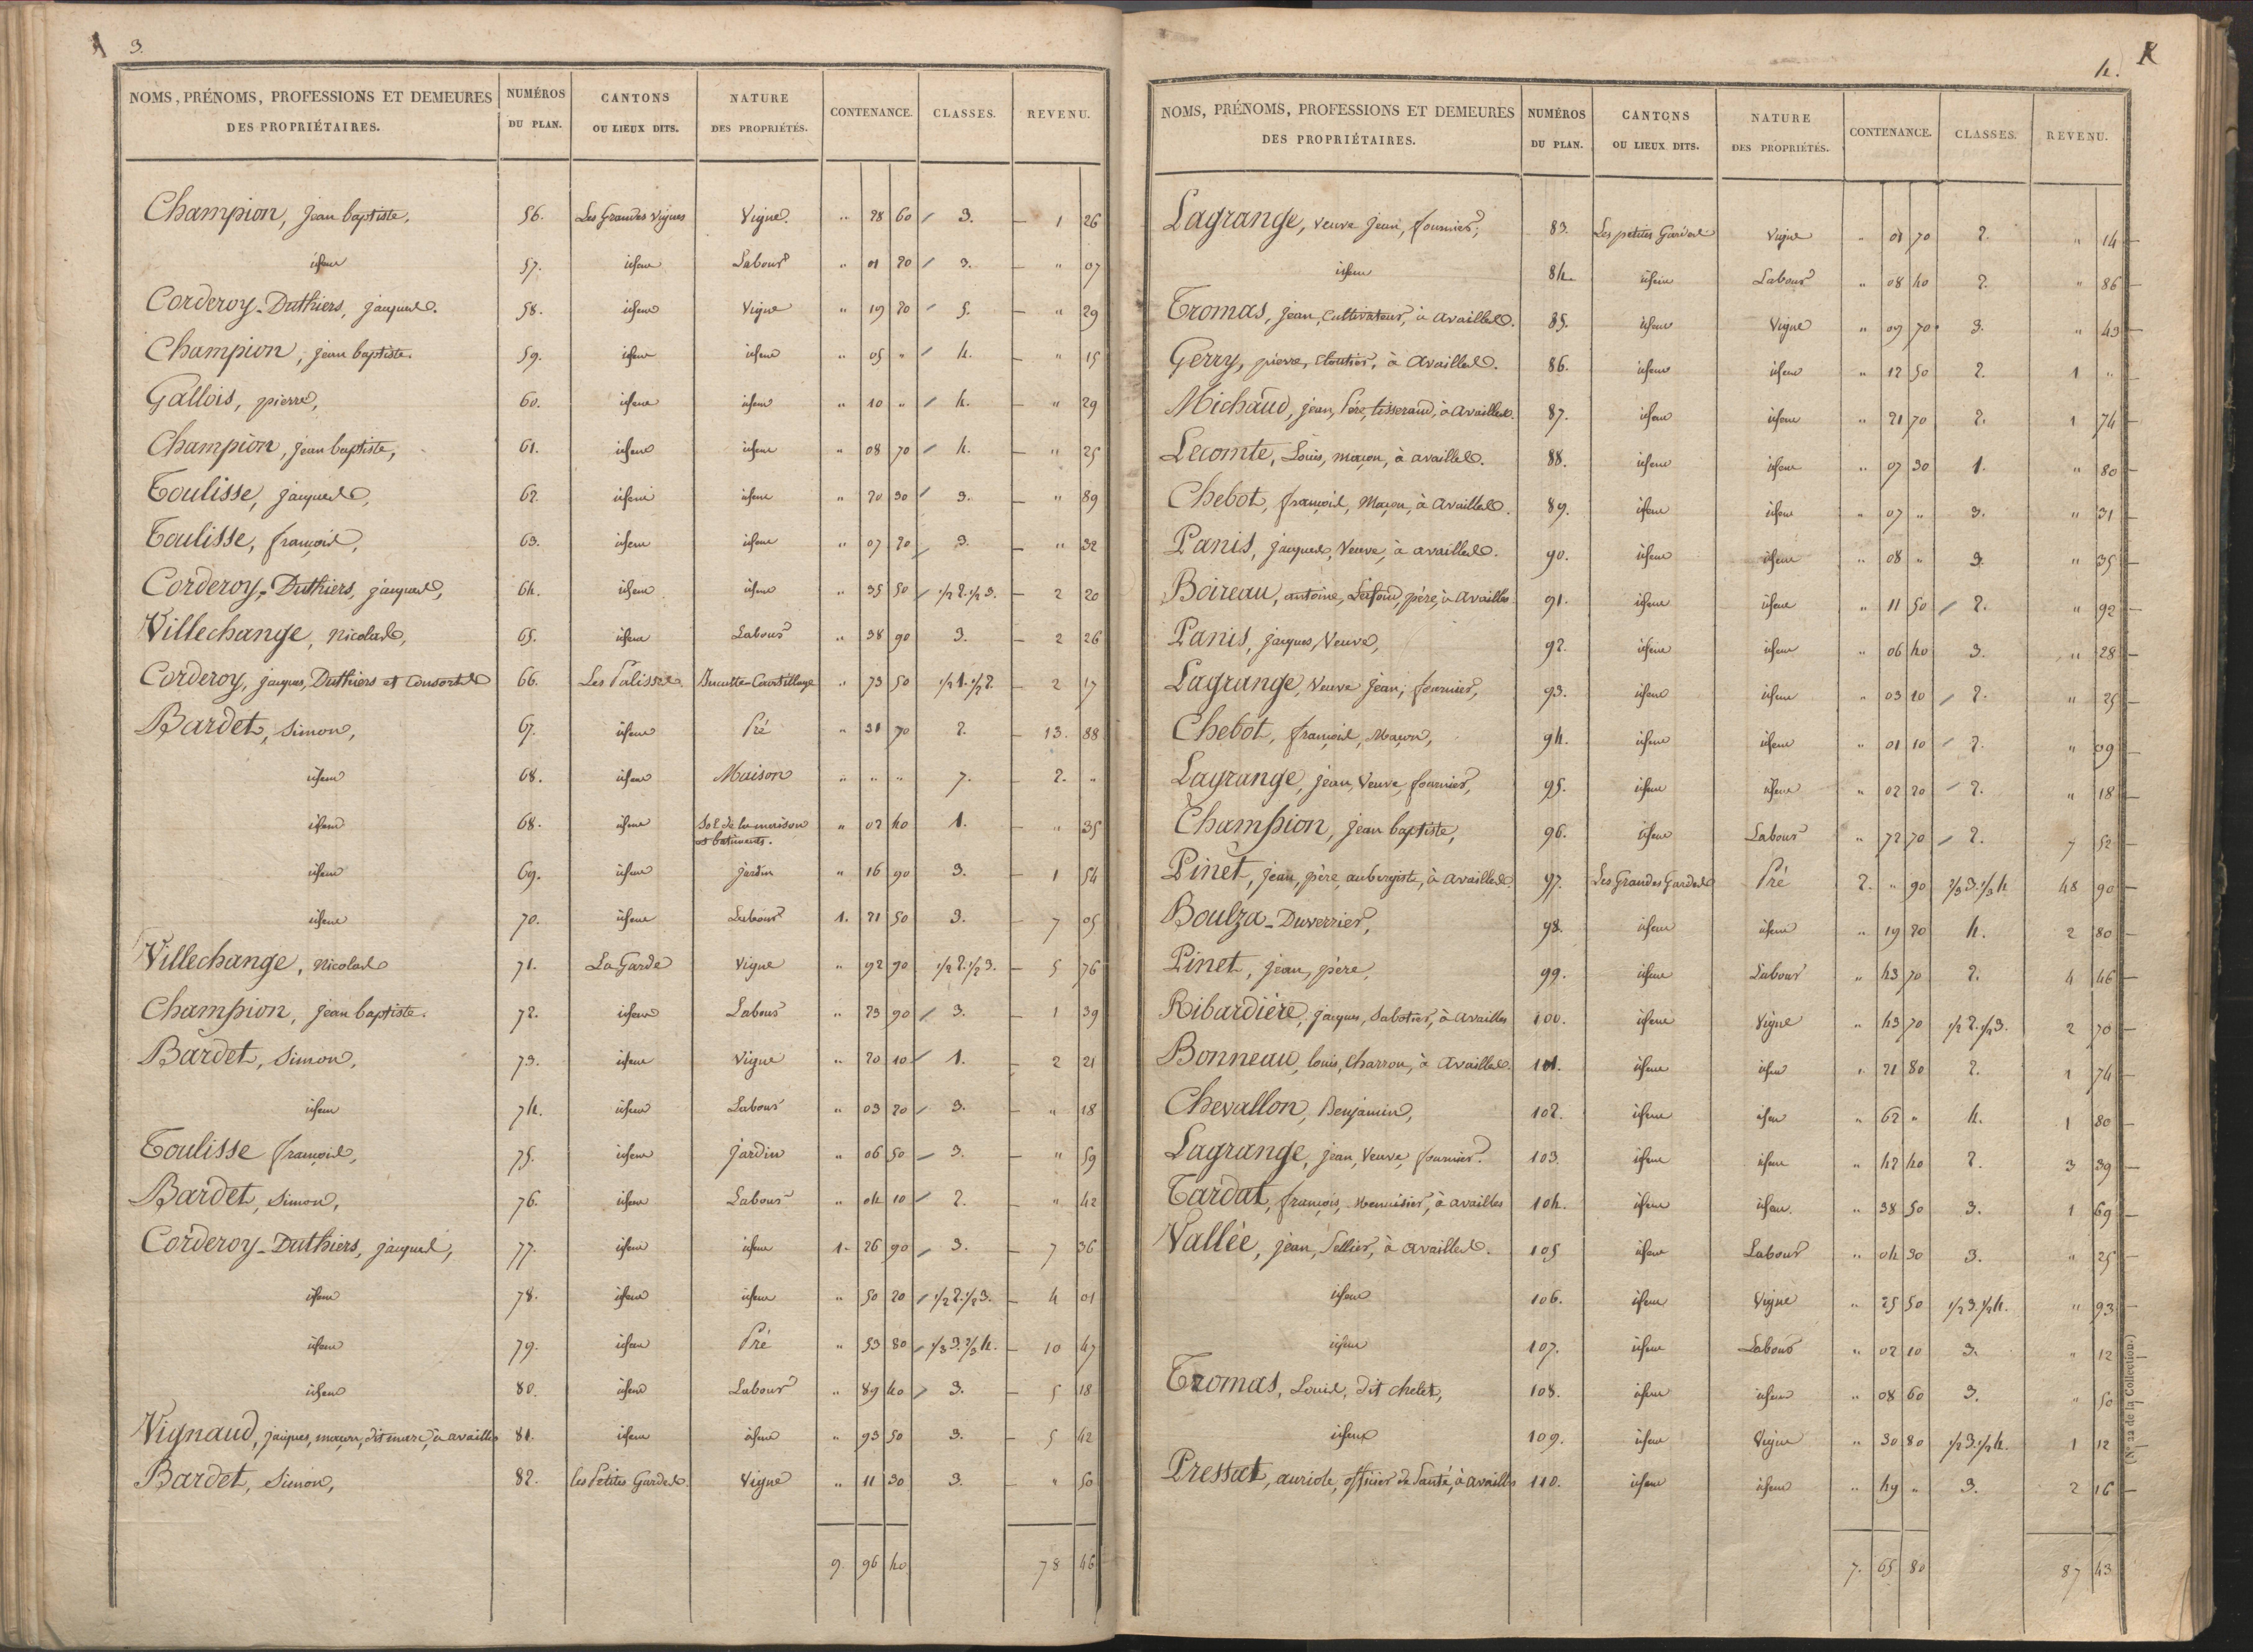 3.
NOMS, PRÉNOMS, PROFESSIONS ET DEMEURES DES PROPRIÉTAIRES. NUMÉROS DU PLAN. CANTONS OU LIEUX DITS. NATURE DES PROPRIÉTÉS. CONTENANCE. CLASSES. REVENU.
Champion, jean baptiste, 56. Les Grandes Vignes Vigne " 28 60 3. 1 26
idem 57. idem Labour " 01 20 3. " 07
Corderoy-Duthiers, jacques. 58. idem Vigne " 19 20 5. " 29
Champion, jean baptiste. 59. idem idem " 05 " 4. " 15
Gallois, pierre, 60. idem idem " 10 " 4. " 29
Champion, jean baptiste, 61. idem idem " 08 70 4. " 25
Toulisse, jacques, 62. idem idem " 20 30 3. " 89
Toulisse, françois, 63. idem idem " 07 20 3. " 32
Corderoy-Duthiers, jacques, 64. idem idem " 35 50 1/2 2. 1/2 3. 2 20
Villechange, Nicolas, 65. idem Labour " 38 90 3. 2 26
Corderoy, jacques, Duthiers et Consorts 66. Les Palisses " 73 50 1/2 1. 1/2 2. 2 17
Bardet, Simon, 67. idem Pré " 31 70 2. 13. 88
idem 68. idem Maison " " " 7. 2. "
idem 68. idem Sol de la maison et batiments. " 02 40 1. " 35
idem 69. idem jardin " 16 90 3. 1 54
idem 70. idem Labour 1. 21 50 3. 7 05
Villechange, Nicolas 71. La Garde Vigne " 92 90 1/2 2. 1/2 3. 5 76
Champion, jean baptiste. 72. idem Labour " 23 90 3. 1 39
Bardet, Simon, 73. idem Vigne " 20 10 1. 2 21
idem 74. idem Labour " 03 20 3. " 18
Toulisse françois, 75. idem jardin " 06 50 3. " 59
Bardet, Simon, 76. idem Labour " 04 10 2. " 42
Corderoy-Duthiers, jacques, 77. idem idem 1. 26 90 3. 7 36
idem 78. idem idem " 50 20 1/2 2. 1/2 3. 4 01
idem 79. idem Pré " 53 80 1/3 3. 2/3 4. 10 47
idem 80. idem Labour " 89 40 3. 5 18
Vignaud, jacques, maçon, dit marc, à availles 81. idem idem " 93 50 3. 5 42
Bardet, Simon, 82. les Petites Gardes. Vigne " 11 30 3. " 50
9. 96 40 78 46
4.
NOMS, PRÉNOMS, PROFESSIONS ET DEMEURES DES PROPRIÉTAIRES. NUMÉROS DU PLAN. CANTONS OU LIEUX DITS. NATURE DES PROPRIÉTÉS. CONTENANCE. CLASSES. REVENU.
Lagrange, veuve jean, fournier, 83. Les petites Gardes Vigne " 01 70 2. " 14
idem 84. idem Labour " 08 40 2. " 86
Tromas, jean, Cultivateur, à availles. 85. idem Vigne " 09 70 3. " 43
Gerry, pierre, Cloutier, à availles. 86. idem idem " 12 50 2. 1 "
Michaud, jean, Père, tisserand, à availles. 87. idem idem " 21 70 2. 1 74
Lecomte, Louis, maçon, à availles. 88. idem idem " 07 30 1. " 80
Chebot, françois, Maçon, à availles. 89. idem idem " 07 " 3. " 31
Panis, jacques, Veuve, à availles. 90. idem idem " 08 " 3. " 35
Boireau, antoine, père, à availles 91. idem idem " 11 50 2. " 92
Panis, jacques, Veuve, 92. idem idem " 06 40 3. " 28
Lagrange, Veuve jean, fournier, 93. idem idem " 03 10 2. " 25
Chebot, françois, Maçon, 94. idem idem " 01 10 2. " 09
Lagrange, jean, Veuve, fournier, 95. idem idem " 02 20 2. " 18
Champion, jean baptiste, 96. idem Labour " 72 70 2. 7 52
Pinet, jean, père, aubergiste, à availles. 97. Les Grandes Gardes Pré 2. " 90 2/3 3. 1/3 4 48 90
Boulza-Duverrier, 98. idem idem " 19 20 4. 2 80
Pinet, jean, père. 99. idem Labour " 43 70 2. 4 46
Ribardière, jacques, Sabotier, à availles 100. idem Vigne " 43 70 1/2 2. 1/2 3. 2 70
Bonneau, louis, Charron, à availles. 101. idem idem " 21 80 2. 1 74
Chevallon, Benjamin, 102. idem idem " 62 " 4. 1 80
Lagrange, jean, Veuve, fournier. 103. idem idem " 42 40 2. 3 39
Tardat, françois, Menuisier, à availles 104. idem idem. " 38 50 3. 1 69
Vallée, jean, Sellier, à availles. 105 idem Labour " 04 30 3. " 25
idem 106. idem Vigne " 25 50 1/2 3. 1/2 4. " 93
idem 107. idem Labour " 02 10 3. " 12
Tromas, Louis, dit chelet, 108. idem idem " 08 60 3. " 50
idem 109. idem Vigne " 30 80 1/2 3. 1/2 4. 1 12
Pressat, auriole, officier de Santé, à availles 110. idem idem " 49 " 3. 2 16
7. 65 80 87 43
(N° 22 de la Collection.)